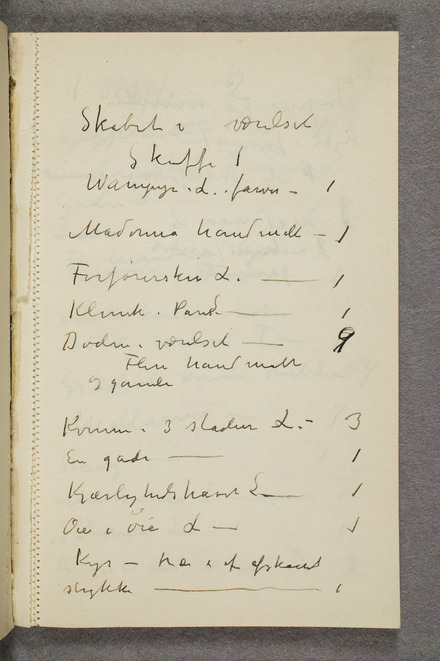 Skabet i værelset
Skuffe 1
Wampyr. L. farve – 1
Madonna haandmalt – 1
Forførersken L. — 1
Klinik. Paris — 1
Døden i værelset — 9
Flere haandmalt
og gamle
Kvinnen i 3 stadier L. – 3
En gade — 1
Kjærlighedshavet L — 1
Øie i Øie L — 1
Kys – træ i et afskaaret
stykke — 1